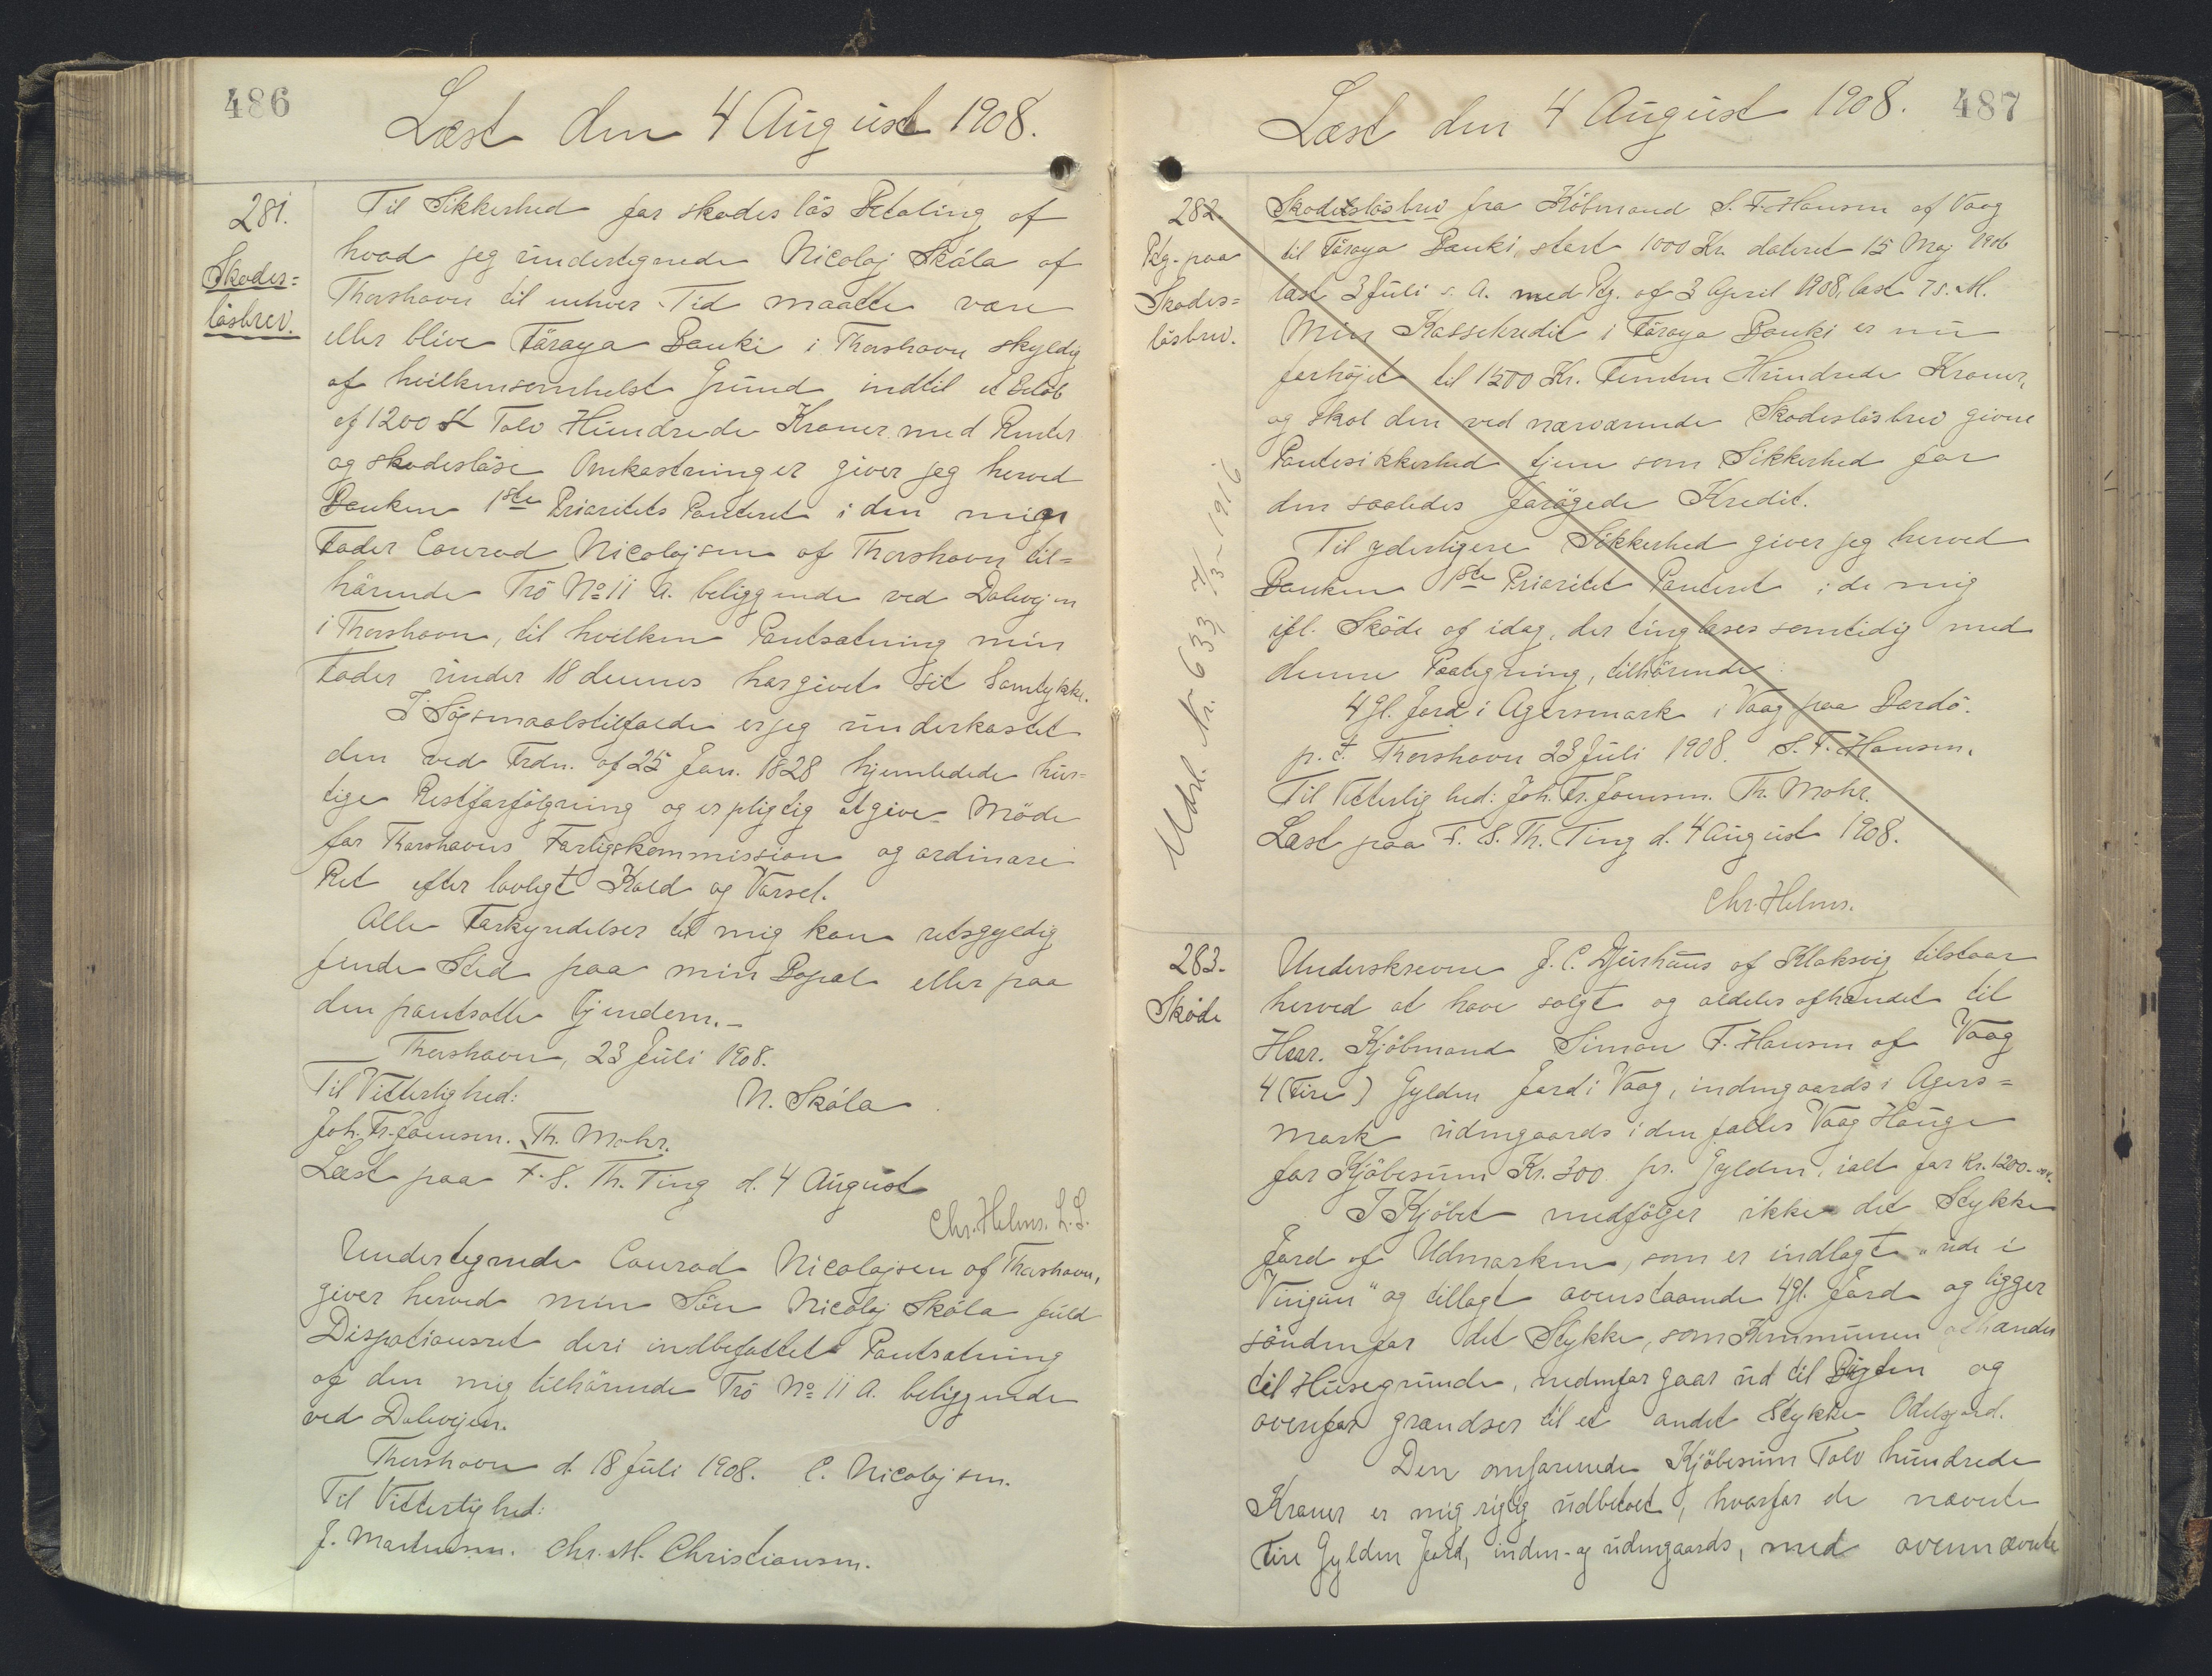 486
Læst den 4 August 1908.
281.
Skades=
løsbrev.
Til Sikkerhed for skadesløs Betaling af
hvad jeg undertegnede Nicolaj Skála af
Thorshavn til enhver Tid maatte være
eller blive Föroya Banki i Thorshavn skyldig
af hvilkensomhelst Grund indtil et Beløb
af 1200 Tolv Hundrede Kroner med Renter
og skadesløse Omkostninger giver jeg herved
Banken 1ste Prioritets Panteret i den min
Fader Conrad Nicolajsen af Thorshavn til=
hørende Trö No 11 a. beliggende ved Dalavejen
i Thorshavn, til hvilken Pantsætning min
Fader under 18 dennes har givet sit Samtykke.
I Søgsmaalstilfælde er jeg underkastet
den ved Frdn. af 25 Jan. 1828 hjemlede hur=
tige Retsforfølgning og er pligtig at give Møde
for Thorshavns Forligskommission og ordinære
Ret efter lovligt Kald og Varsel.
Alle Forkyndelser til mig kan retsgyldig
finde Sted paa min Bopæl eller paa
den pantsatte Ejendom.-
Thorshavn, 23 Juli 1908.
Til Vitterlighed:
N. Skála
Joh. Fr. Joensen. Th. Mohr.
Læst paa F. S. Th. Ting d. 4 August
Chr. Helms. L.S.
Undertegnede Conrad Nicolajsen af Thorshavn,
giver herved min Søn Nicolaj Skála fuld
Dispotionsret deri indbefattet Pantsætning
af den mig tilhørende Trö No 11 a. beliggende
ved Dalavejen.
Thorshavn d. 18 Juli 1908. C. Nicolajsen.
Til Vitterlighed:
J. Mortensen. Chr. M. Christiansen.
487
Læst den 4 August 1908.
282.
Ptg. paa
Skades=
løsbrev.
Udsl. Nr. 633 7/3-1916
Skadesløsbrev fra Købmand S. F. Hansen af Vaag
til Föroya Banki, stort 1000 Kr. dateret 15 Maj 1906
læst 3 Juli s. A. med Ptg. af 3 April 1908, læst 7 s. M.
Min Kassekredit i Föroya Banki er nu
forhøjet til 1500 Kr. Femten Hundrede Kroner,
og skal den ved nærværende Skadesløsbrev givne
Pantesikkerhed tjene som Sikkerhed for
den saaledes forøgede Kredit.
Til yderligere Sikkerhed giver jeg herved
Banken 1ste Prioritet Panteret i de mig
ifl. Skøde af idag, der tinglæses samtidig med
denne Paategning, tilhørende:
4 gl. Jord i Agersmark i Vaag paa Bordø.
p. t. Thorshavn 23 Juli 1908. S. F. Hansen.
Til Vitterlighed: Joh. Fr. Joensen. Th. Mohr.
Læst paa F. S. Th. Ting d. 4 August 1908.
Chr. Helms.
283.
Skøde
Underskrevne J. C. Djurhuus af Klaksvig tilstaar
herved at have solgt og aldeles afhændet til
Herr. Kjøbmand Simon F. Hansen af Vaag
4 (Fire) Gylden Jord i Vaag, indengaards i Agers=
mark udengaards i den fælles Vaag Hauge
for Kjøbesum Kr. 300 pr. Gylden, ialt for Kr. 1200.
I Kjøbet medfølger ikke det Stykke
Jord af Udmarken, som er indlagt „ude i
og tillagt ovenstaaende 4 gl. Jord og ligger
søndenfor det Stykke, som Kommunen afhænder
til Husegrunde, nedenfor gaar ud til Bugten og
ovenfor grændser til et andet Stykke Odelsjord.
Den omførende Kjøbesum Tolv hundrede
Kroner er mig rigtig udbetalt, hvorfor de nævnte
Fire Gylden Jord, inden- og udengaards, med ovennævnte